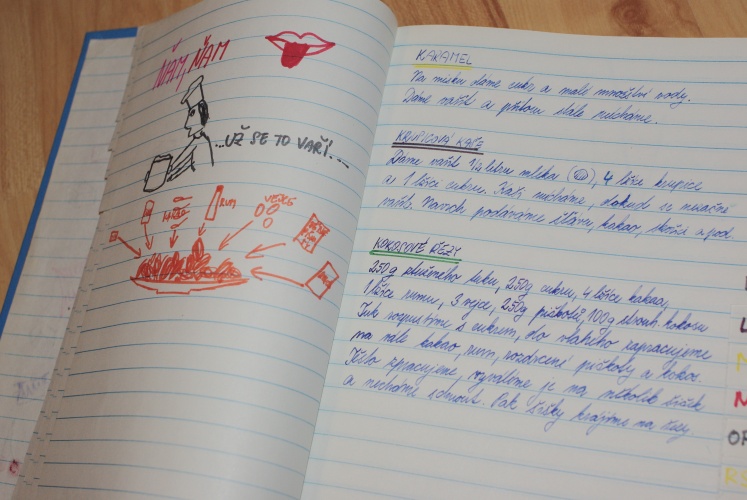 ŇAM, ŇAM
...UŽ SE TO VAŘÍ....
RUM
VEJCE
KARAMEL
Na misku dáme cukr a malé množství vody.
Dáme vařit a přitom stále mícháme.
KRUPICOVÁ KAŠE
Dáme vařit 1/4 litru mléka, 4 lžíce krupice
a 1 lžíce cukru. mícháme, dokud se nezačne
vařit. Navrch podáváme kakao, skořici apod.
KOKOSOVÉ ŘEZY
250g ztuženého tuku, 250g cukru, 4 lžíce kakaa,
1 lžíce rumu, 3 vejce, 250g piškotů, 100g strouh. kokosu
Tuk rozpustíme s cukrem, do vlahého zapracujeme
kakao, rum, rozdrcené piškoty a kokos.
Těsto zpracujeme, vyválíme je na několik šišek
a necháme schnout. Pak šišky krájíme na řezy.